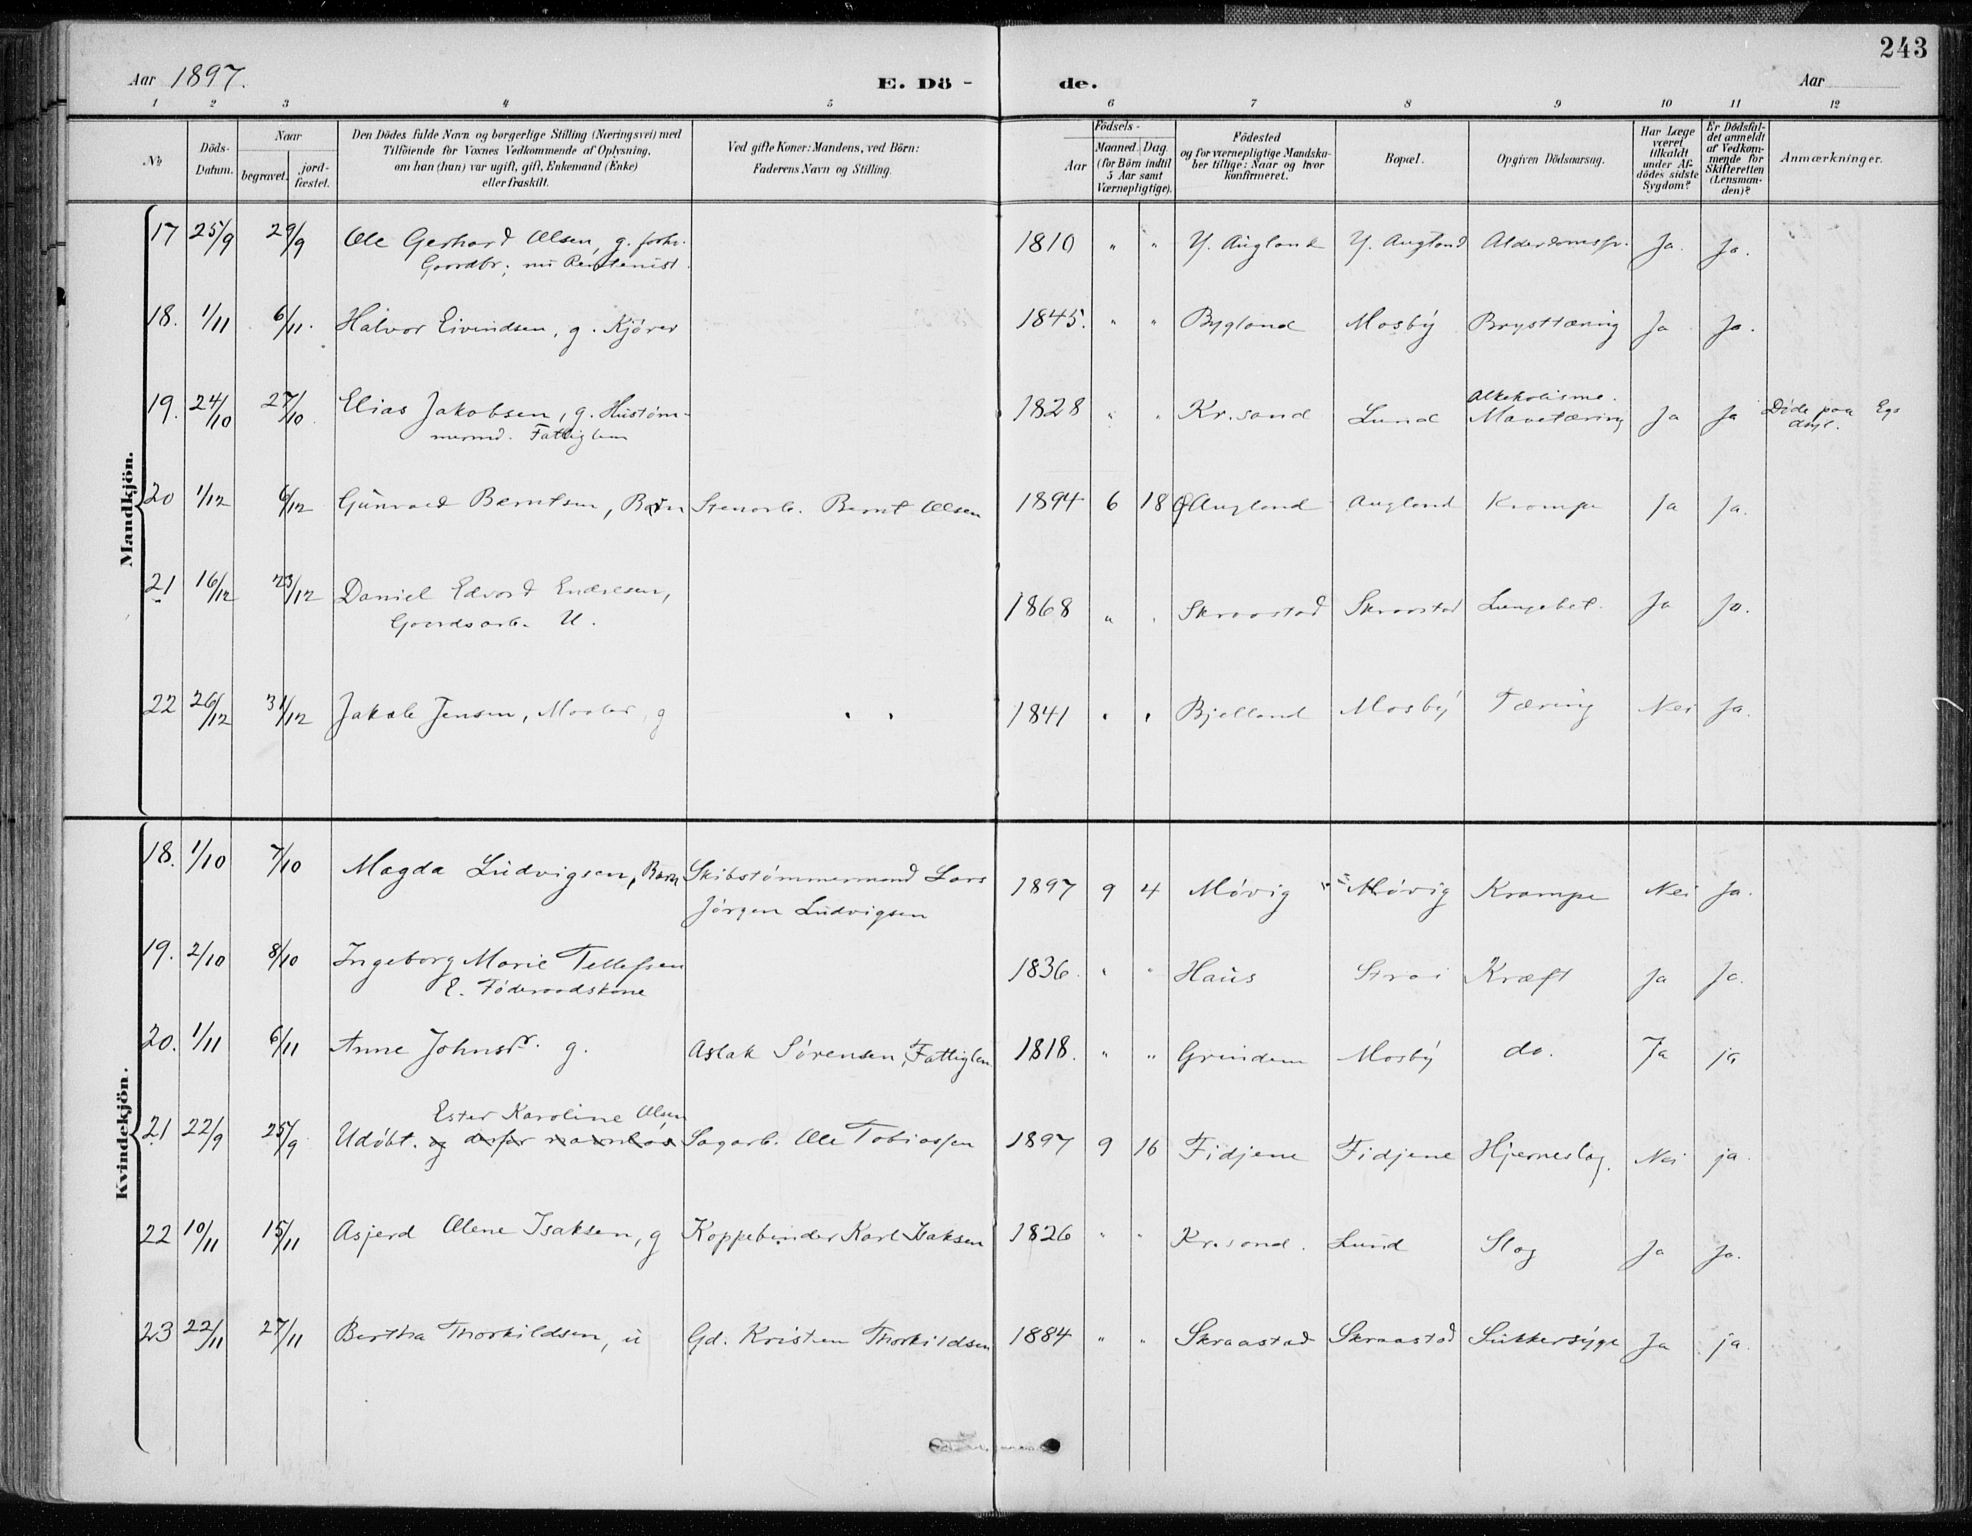 243
Aar 1897.
E. Dö - de.
Aar
1 2 3 4 5 6 7 8 9 10 11 12
№
Döds-Datum.
Naar
begravet.
jord-fæstet.
Den Dödes fulde Navn og borgerlige Stilling (Næringsvei) med
Tilföiende for Voxnes Vedkommende af Oplysning,
om han (hun) var ugift, gift, Enkemand (Enke)
eller fraskilt.
Ved gifte Koner: Mandens, ved Börn:
Faderens Navn og Stilling.
Födsels-
Aar
Maaned. Dag
(for Börn indtil
5 Aar samt
Værnepligtige).
Födested
og for værnepligtige Mandska-
ber tillige: Naar og hvor
konfirmeret.
Bopæl.
Opgiven Dödsaarsag.
Har Læge
været
tilkaldt
under Af-
dödes sidste
Sygdom?
Er Dödsfal-
det anmeldt
af Vedkom-
mende for
Skifteretten
(Lensman-
den)?
Anmærkninger.
Mandkjön.
17 25/9 29/9 Ole Gerhard Olsen, g. forhv. 1810 " " Y. Augland Y. Augland Alderdomssv. Ja. Ja.
Gaardbr; nu Rentenist.
18. 1/11 6/11. Halvor Eivindsen, g. Kjører 1845. " " Bygland Mosby Brysttæring Ja Ja.
19. 24/10 27/10. Elias Jakobsen, g. Hustøm- 1828 " " Kr.sand Lund Alkoholisme. Mavetæring Ja Ja Døde paa Egs
mermd. Fattiglem
asyl.
20 1/12 6/12 Gunvald Berntsen, Barn Stenarb. Bernt Olsen 1894 6 18 Ø Augland Augland Krampe Ja Ja.
21 16/12 23/12 Daniel Edvard Endresen, 1868 " " Skraastad Skraastad Lungebet. Ja Ja.
Gaardsarb. U.
22 26/12 31/12 Jakob Jensen, Maaler, g " " 1841 " " Bjelland Mosby Tæring Nei Ja.
Kvindekjön.
18. 1/10 7/10 Magda Ludvigsen, Barn Skibstømmermand Lars 1897 9 4 Møvig Møvig Krampe Nei Ja.
Jørgen Ludvigsen
19. 2/10 8/10 Ingeborg Marie Tellefsen 1836. " " Haus Strai Kræft Ja Ja.
E. Føderaadskone
20. 1/11 6/11 Anne Johnsdr. g. Aslak Sørensen, Fattiglem 1818. " " Grindem Mosby do. Ja ja
Ester Karoline Olsen
21 22/9 25/9 Udøbt. og derfor navnløs Sagarb. Ole Tobiassen 1897 9 16 Fidjene Fidjene Hjerneslag. Nei ja
22 10/11 15/11 Asjerd Olene Isaksen, g Koppebinder Karl Isaksen 1826 " " Kr.sand. Lund Slag Ja Ja.
23 22/11 27/11 Bertha Thorkildsen, u Gd. Kristen Thorkildsen 1884 " " Skraastad Skraastad Sukkersyge Ja ja